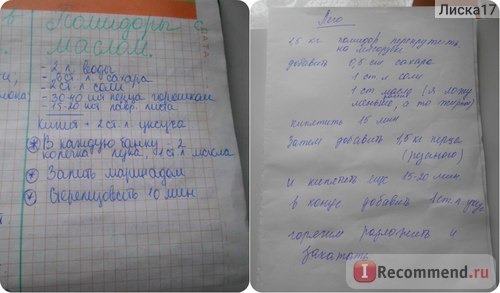 Помидоры с
маслом.
- 2 л. воды
- 2 ст л сахара
- 2 ст л соли
- 30-40 шт перца горошком
- 15-20 шт лавр. листа
Кипит + 2 ст л уксуса
* В каждую банку - 2
колечка лука, 1 ст л масла
* Залить маринадом
* Стерилизовать 10 мин
ДАТА
Лиска17
Лечо
1,5 кг помидор перекрутить
на мясорубке
добавить 0,5 ст сахара
1 ст л соли
1 ст масла (я ложу
меньше, а то жирно)
кипятить 15 мин
Затем добавить 1,5 кг перца
(резаного)
и кипятить еще 15-20 мин
в конце добавить 1 ст. л укс
горячим разложить и
закатать
I Recommend.ru